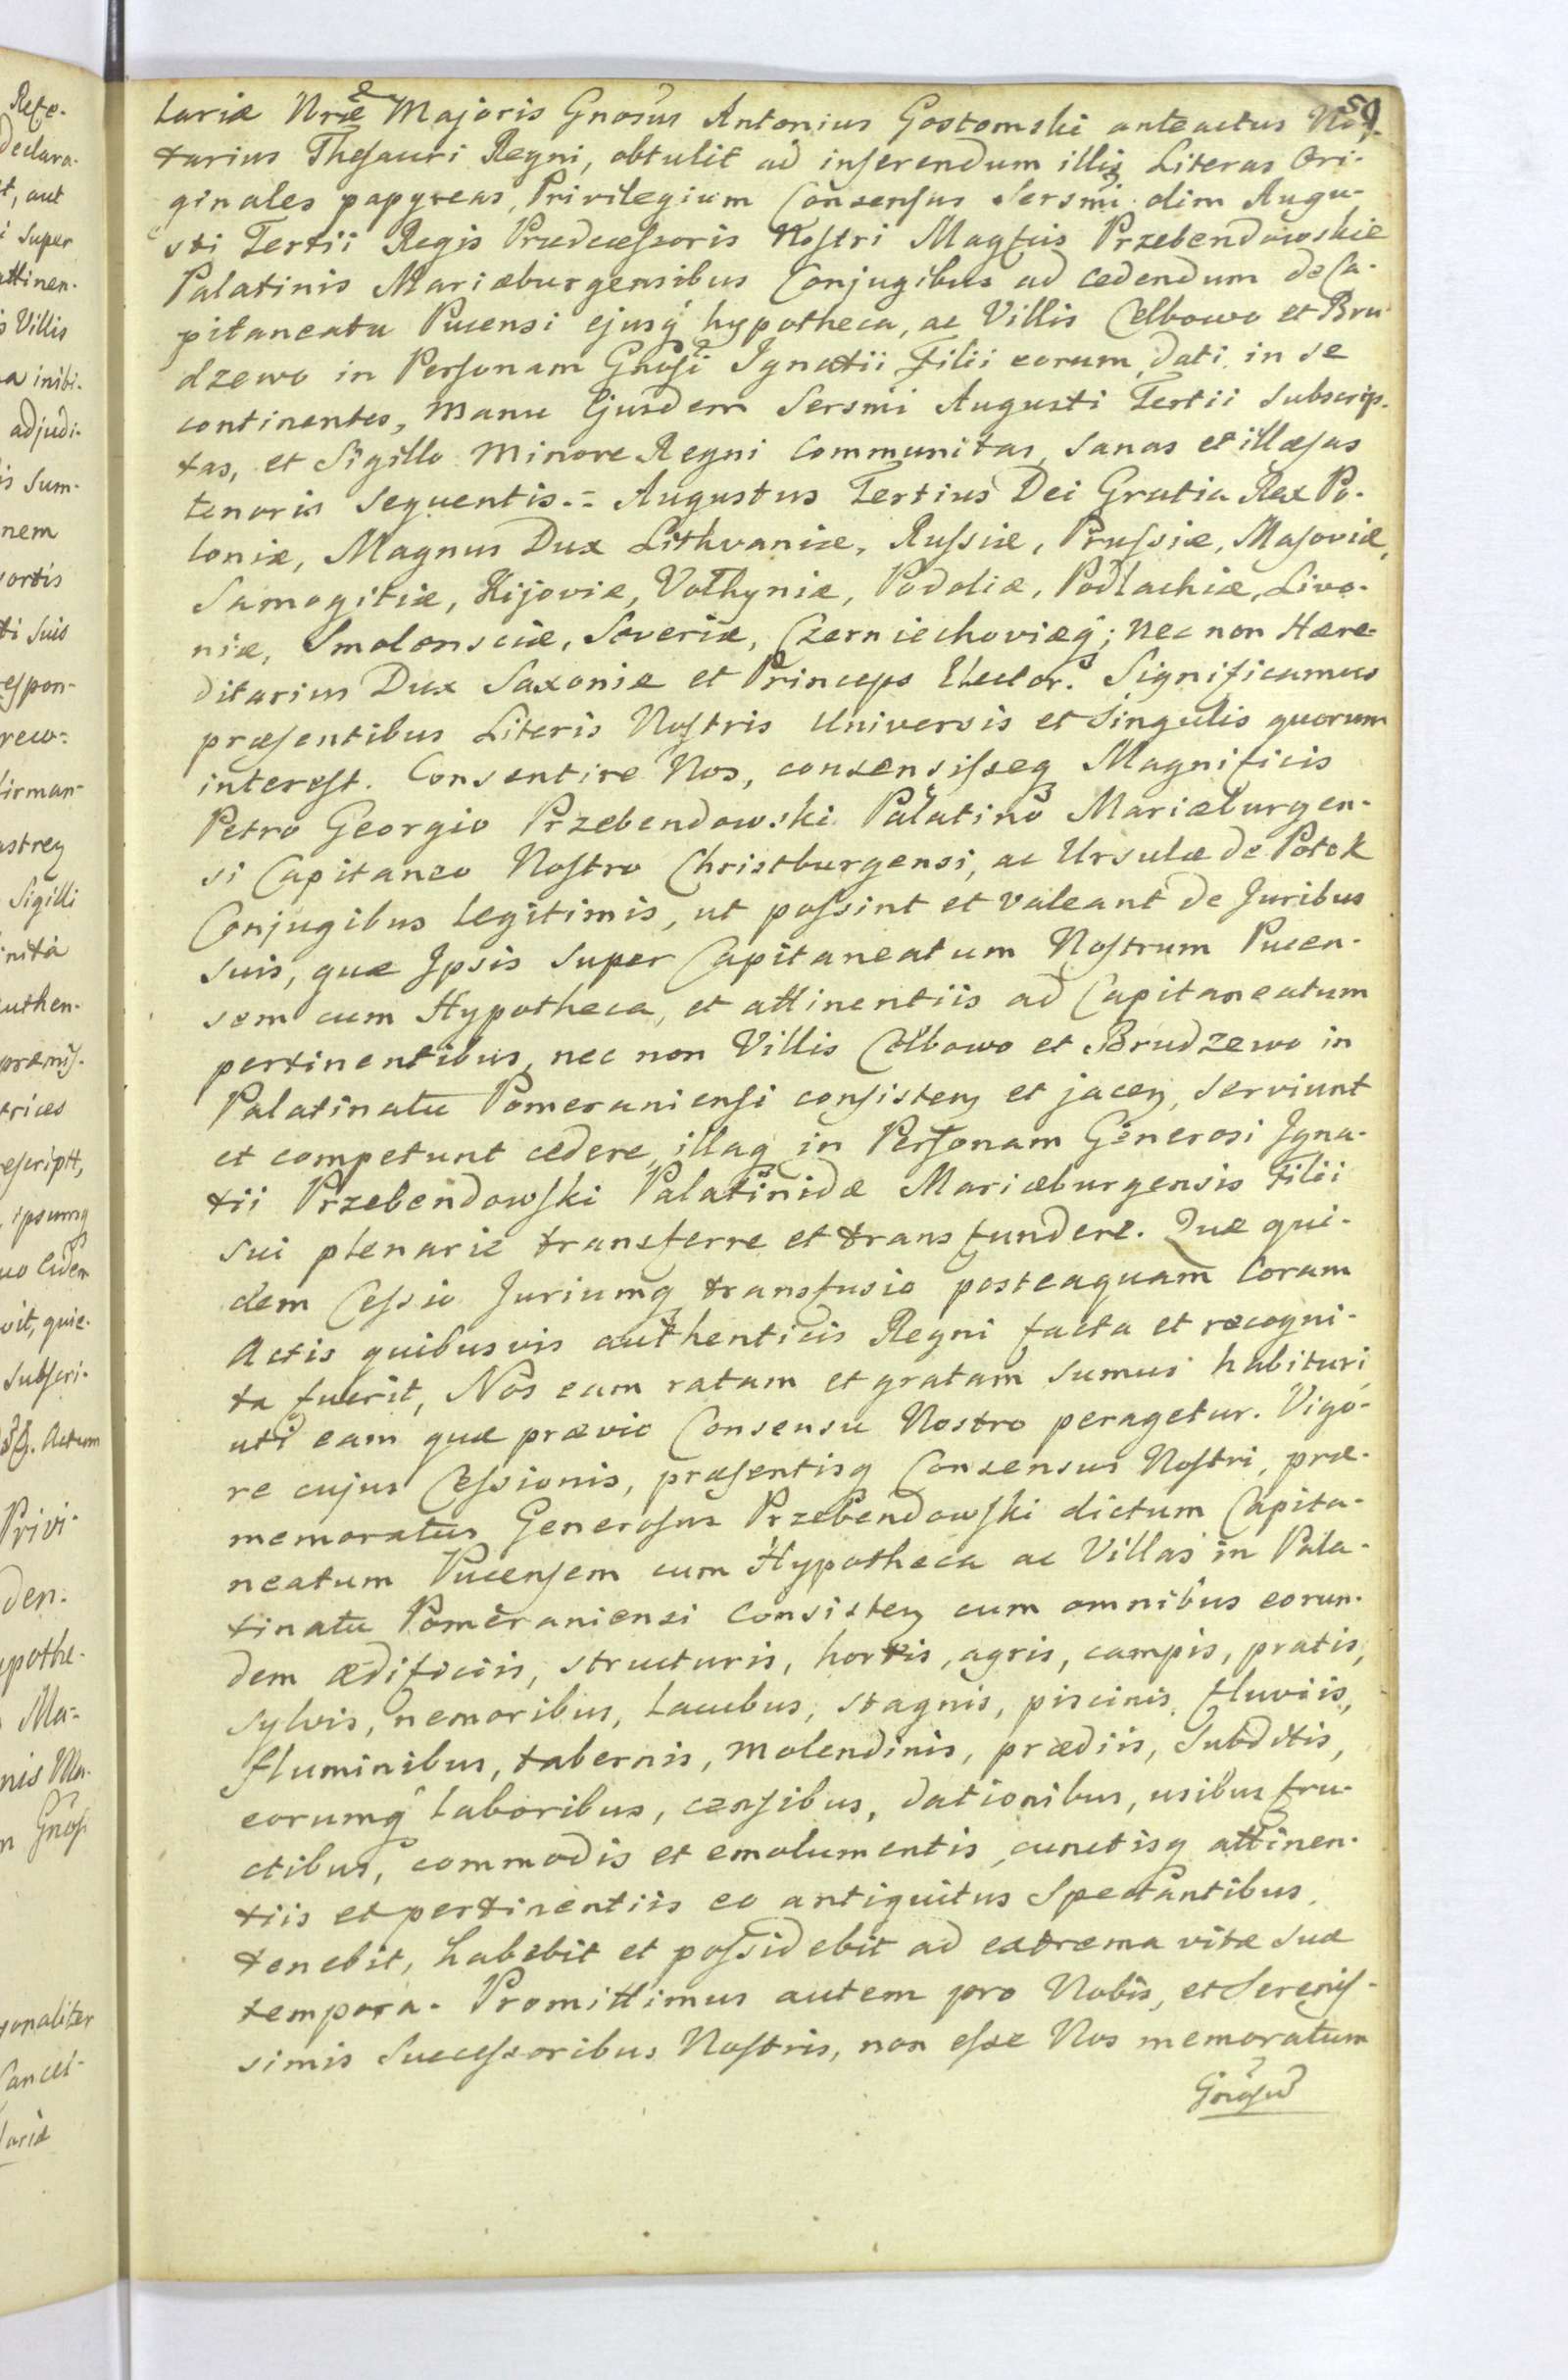 59
lariæ Nræ Majoris Gnosus Antonius Gostomski anteactus No-
tarius Thesauri Regni, obtulit ad inserendum illisq Literas Ori-
ginales papyreas, Privilegium Consensus Sersmi olim Augu-
sti Tertii Regis Prædecessoris Nostri Magfcis Przebendowskie
Palatinis Mariæburgensibus Conjugibus ad cedendum de Ca-
pitaneatu Pucensi ejusq hypotheca, ac Villis Celbowo et Bru-
dzewo in Personam Gnosi Ignatii Filii eorum, dati in se
continentes, manu Ejusdem Sersmi Augusti Tertii Subscrip-
tas, et Sigillo Minore Regni Communitas, Sanas et illæsas
tenoris Sequentis.= Augustus Tertius Dei Gratia Rex Po-
loniæ, Magnus Dux Lithvaniæ, Russiæ, Prussiæ, Masoviæ,
Samogitiæ, Kijoviæ, Volhyniæ, Podoliæ, Podlachiæ, Livo-
niæ, Smolensciæ, Severiæ, Czerniechoviæq; nec non Hære-
ditarius Dux Saxoniæ et Princeps Elector. Significamus
præsentibus Literis Nostris Universis et Singulis quorum
interest. Consentire Nos, consensisseq Magnificis
Petro Georgio Przebendowski Palatino Mariæburgen-
si Capitaneo Nostro Christburgensi, ac Ursulæ de Potok
Conjugibus legitimis, ut possint et valeant de Juribus
suis, quæ Ipsis super Capitaneatum Nostrum Pucen-
sem cum Hypotheca, et attinentiis ad Capitaneatum
pertinentibus, nec non Villis Celbowo et Brudzewo in
Palatinatu Pomeraniensi consisten et jacen, serviunt
et competunt cedere, illaq in Personam Generosi Igna-
tii Przebendowski Palatinidæ Mariæburgensis Filii
sui plenarie transferre et transfundere. Quæ qui-
dem Cessio Juriumq transfusio posteaquam Coram
Actis quibusvis authenticis Regni facta et recogni-
ta fuerit, Nos eam ratam et gratam sumus habituri,
uti eam quæ prævio Consensu Nostro peragetur. Vigo-
re cujus Cessionis, præsentisq Consensus Nostri, præ-
memoratus Generosus Przebendowski dictum Capita-
neatum Pucensem cum Hypotheca ac Villas in Pala-
tinatu Pomeraniensi Consisten cum omnibus eorun-
dem ædificiis, structuris, hortis, agris, campis, pratis,
sylvis, nemoribus, lacubus, stagnis, piscinis, fluviis,
fluminibus, tabernis, molendinis, prædiis, Subditis,
eorumq laboribus, censibus, dationibus, usibus fru-
ctibus, commodis et emolumentis, cunctisq attinen-
tiis et pertinentiis eo antiquitus Spectantibus
tenebit, habebit et possidebit ad extrema vitæ suæ
tempora. Promittimus autem pro Nobis, et Sereniſ-
simis Successoribus Nostris, non esse Nos memoratum
Gnosu